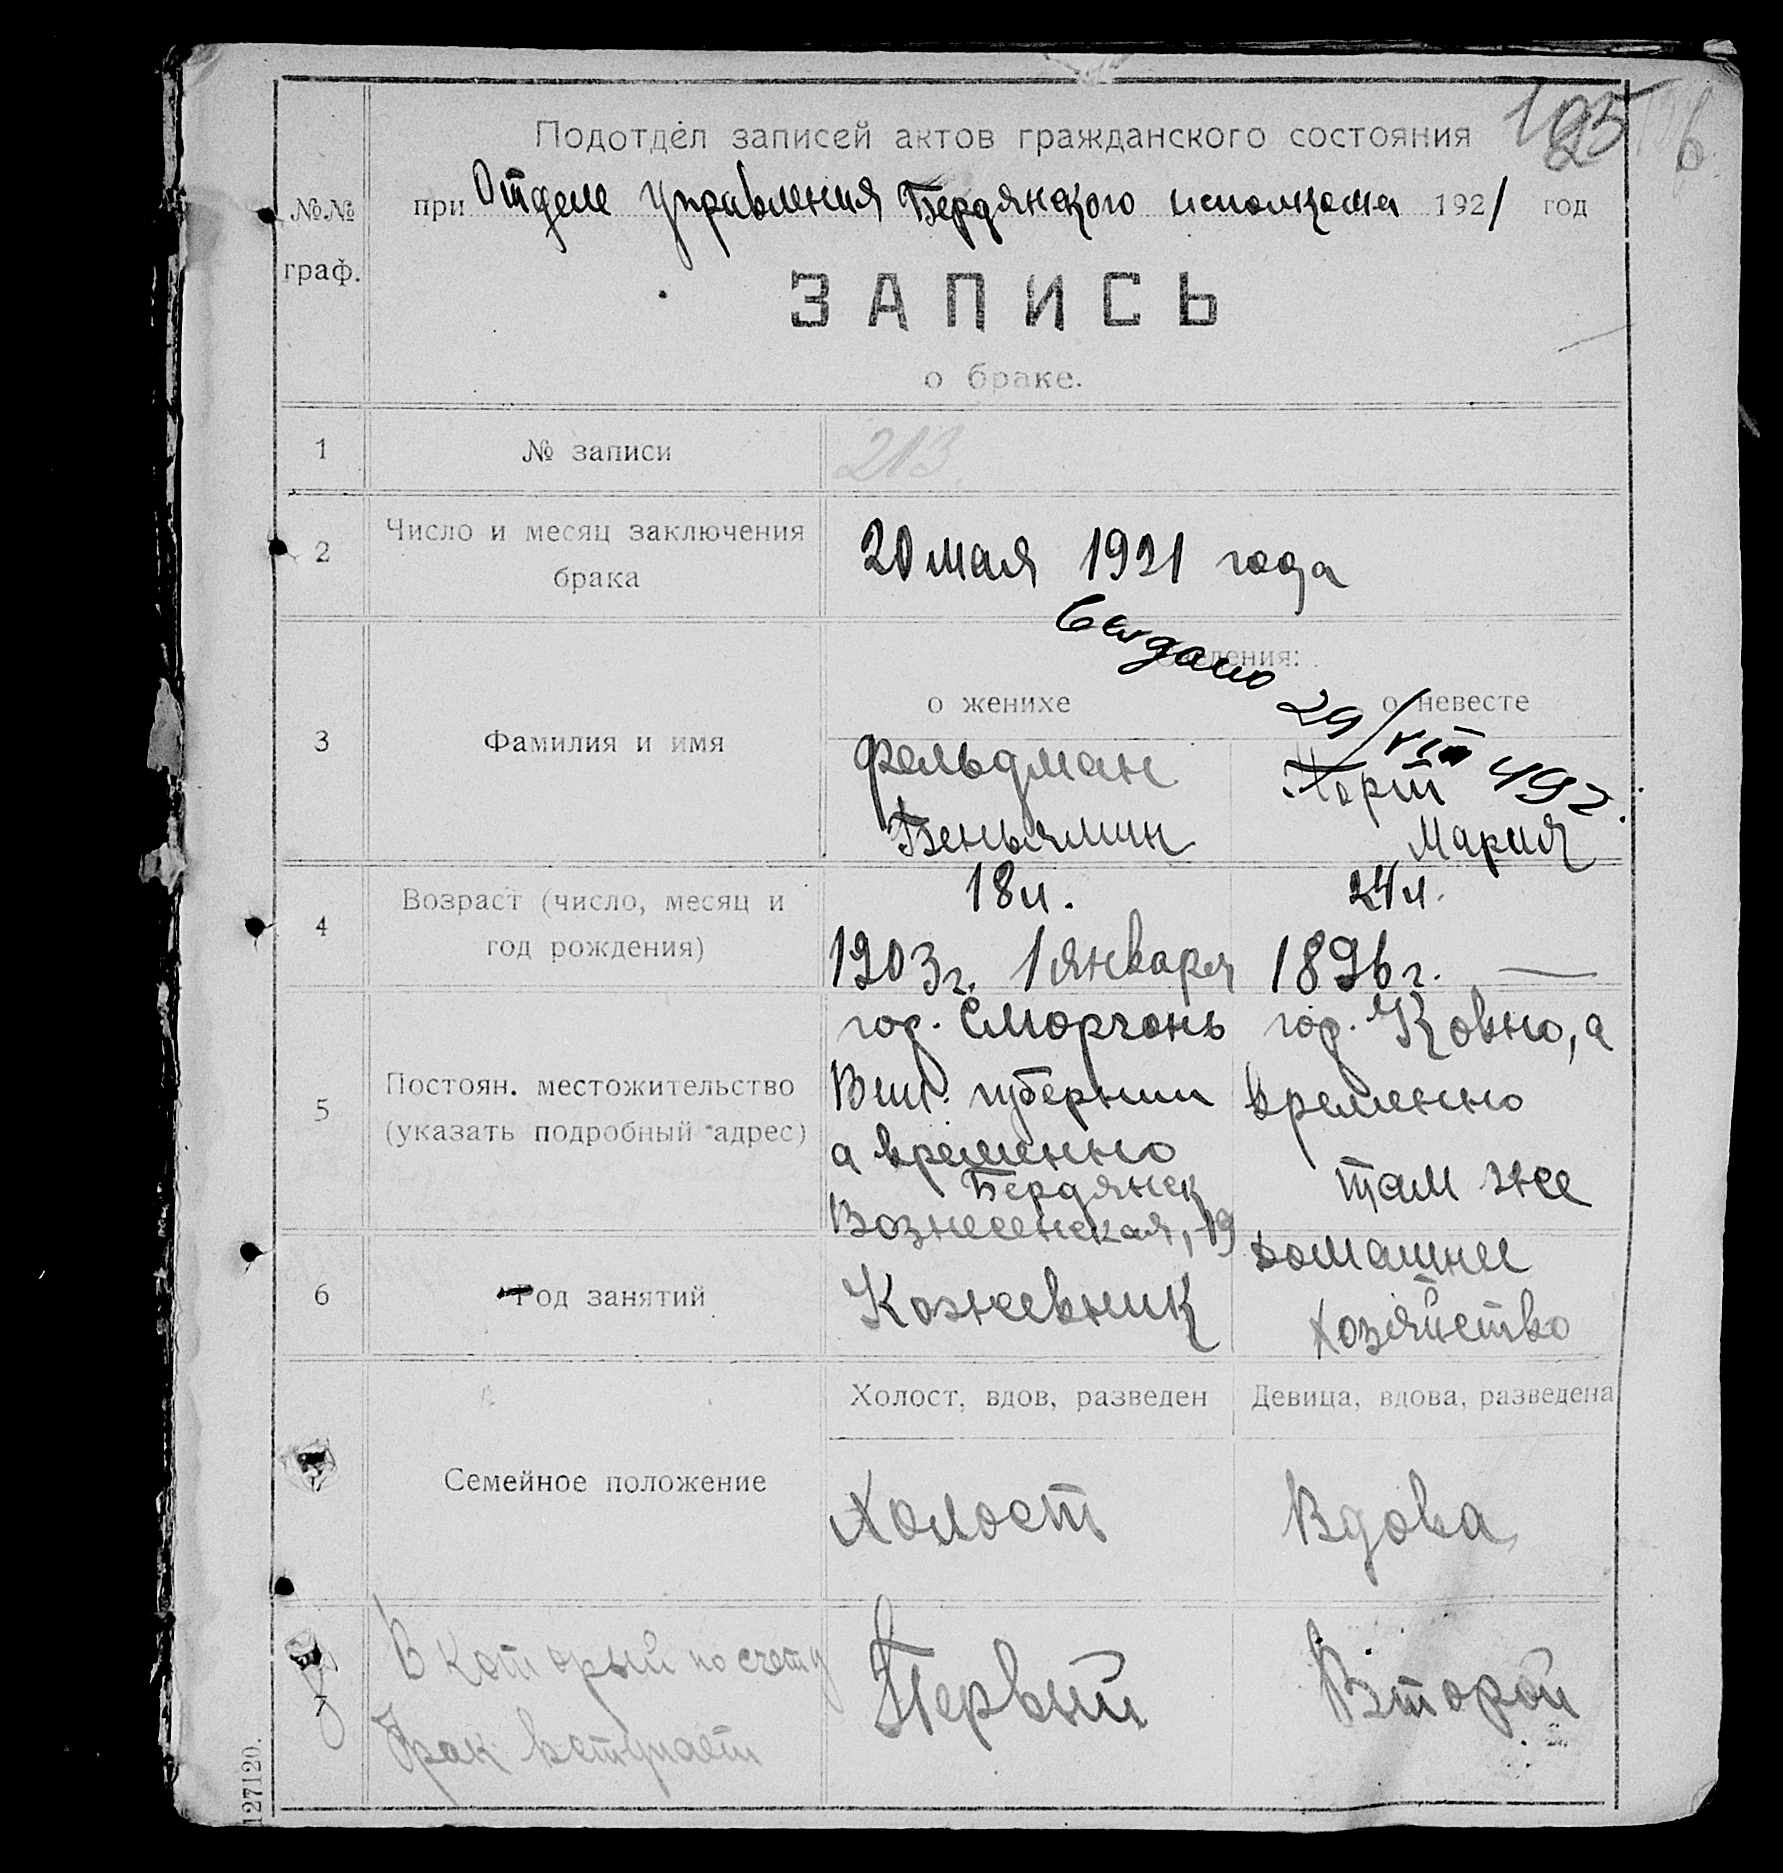 195
Подотдел записей актов гражданского состояния
№№ граф.
при Отделе Управления Бердянского исполкома 1921 год
ЗАПИСЬ
о браке.
1
№ записи
213
2
Число и месяц заключения
брака
20 мая 1921 года
Выдано 29/VIII 192
о женихе
о невесте
3
Фамилия и имя
Фельдман
Беньямин
Мария
4
Возраст (число, месяц и
год рождения)
18 л.
24 л.
1903 г. 1 января
1896 г. —
5
Постоян. местожительство
(указать подробный адрес)
гор. Сморгонь
Вил. губернии
а временно
Бердянск
Вознесенская, 19
гор. Ковно, а
временно
там же
6
Род занятий
Кожевник
домашнее
хозяйство
Семейное положение
Холост, вдов, разведен
Девица, вдова, разведена
Холост
Вдова
В который по счету
брак вступает
Первый
Второй
127120.